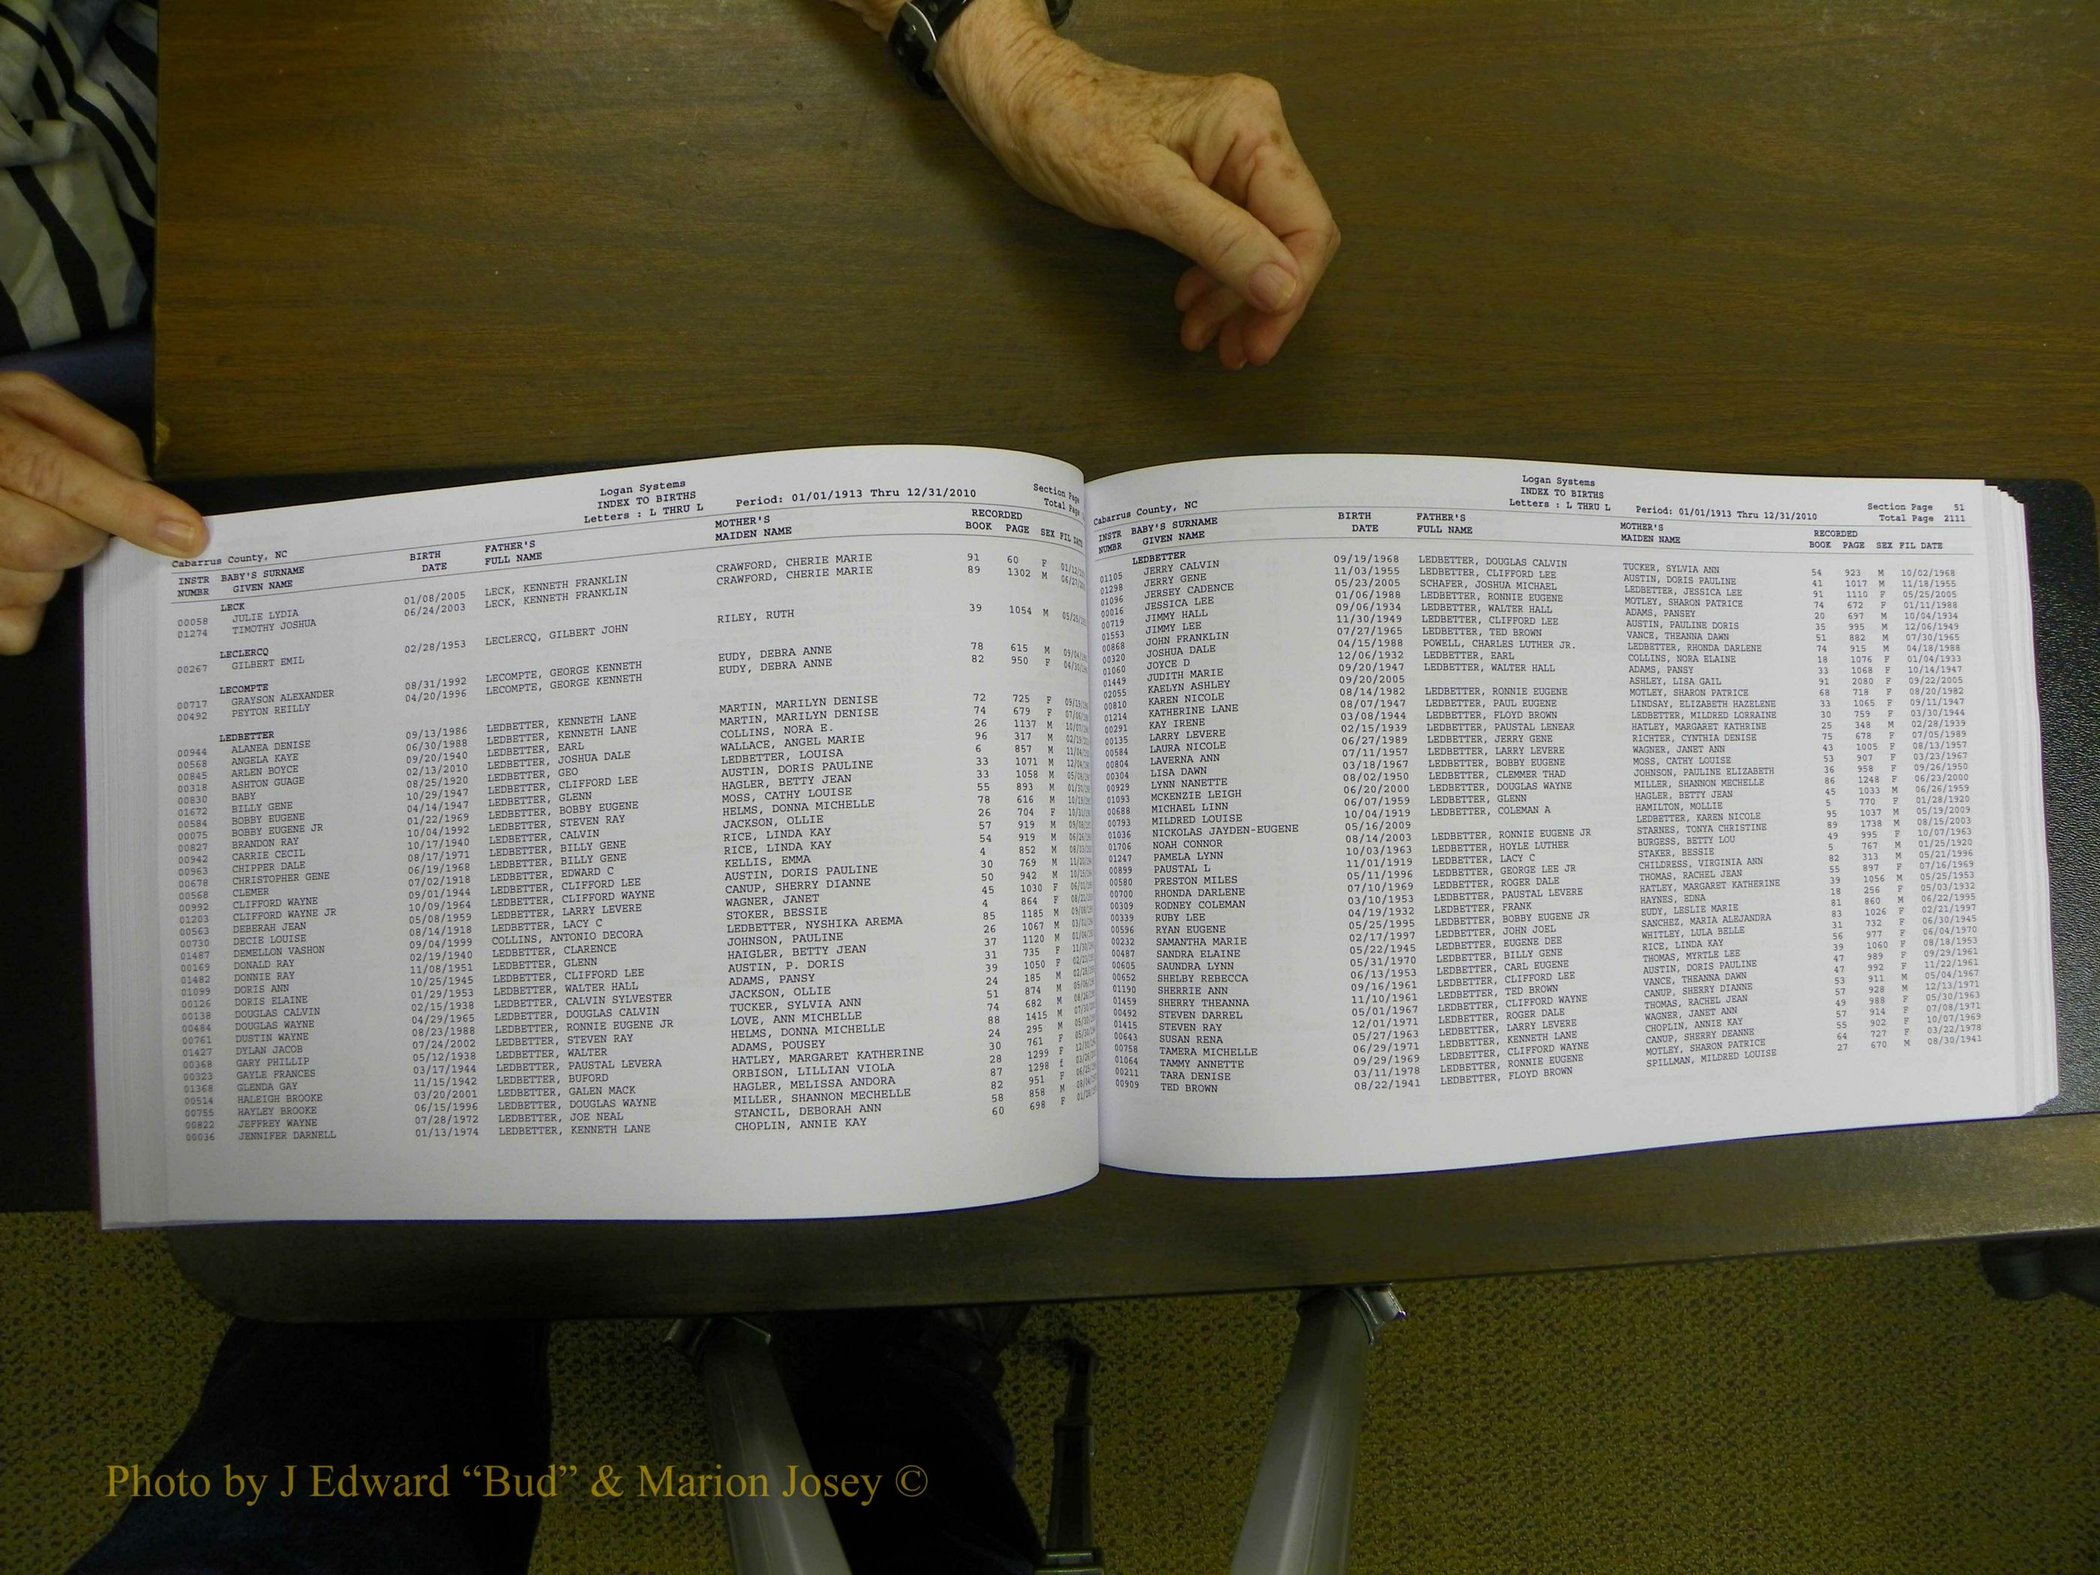 Logan Systems
INDEX TO BIRTHS
Letters : L THRU L Period: 01/01/1913 Thru 12/31/2010 Section Page
Total Page
Cabarrus County, NC
INSTR NUMBR BABY'S SURNAME GIVEN NAME BIRTH DATE FATHER'S FULL NAME MOTHER'S MAIDEN NAME RECORDED BOOK PAGE SEX FIL DATE
LECK
00058 JULIE LYDIA 01/08/2005 LECK, KENNETH FRANKLIN CRAWFORD, CHERIE MARIE 91 60 F
01274 TIMOTHY JOSHUA 06/24/2003 LECK, KENNETH FRANKLIN CRAWFORD, CHERIE MARIE 89 1302 M
LECLERCQ
00267 GILBERT EMIL 02/28/1953 LECLERCQ, GILBERT JOHN RILEY, RUTH 39 1054 M
LECOMPTE
00717 GRAYSON ALEXANDER 08/31/1992 LECOMPTE, GEORGE KENNETH EUDY, DEBRA ANNE 78 615 M
00492 PEYTON REILLY 04/20/1996 LECOMPTE, GEORGE KENNETH EUDY, DEBRA ANNE 82 950 F
LEDBETTER
00944 ALANEA DENISE 09/13/1986 LEDBETTER, KENNETH LANE MARTIN, MARILYN DENISE 72 725 F
00568 ANGELA KAYE 06/30/1988 LEDBETTER, KENNETH LANE MARTIN, MARILYN DENISE 74 679 F
00845 ARLEN BOYCE 09/20/1940 LEDBETTER, EARL COLLINS, NORA E. 26 1137 M
00318 ASHTON GUAGE 02/13/2010 LEDBETTER, JOSHUA DALE WALLACE, ANGEL MARIE 96 317 M
00830 BABY 08/25/1920 LEDBETTER, GEO LEDBETTER, LOUISA 6 857 M
01672 BILLY GENE 10/29/1947 LEDBETTER, CLIFFORD LEE AUSTIN, DORIS PAULINE 33 1071 M
00584 BOBBY EUGENE 04/14/1947 LEDBETTER, GLENN HAGLER, BETTY JEAN 33 1058 M
00075 BOBBY EUGENE JR 01/22/1969 LEDBETTER, BOBBY EUGENE MOSS, CATHY LOUISE 55 893 M
00827 BRANDON RAY 10/04/1992 LEDBETTER, STEVEN RAY HELMS, DONNA MICHELLE 78 616 M
00942 CARRIE CECIL 10/17/1940 LEDBETTER, CALVIN JACKSON, OLLIE 26 704 F
00963 CHIPPER DALE 08/17/1971 LEDBETTER, BILLY GENE RICE, LINDA KAY 57 919 M
00678 CHRISTOPHER GENE 06/19/1968 LEDBETTER, BILLY GENE RICE, LINDA KAY 54 919 M
00568 CLEMER 07/02/1918 LEDBETTER, EDWARD C KELLIS, EMMA 4 852 M
00992 CLIFFORD WAYNE 09/01/1944 LEDBETTER, CLIFFORD LEE AUSTIN, DORIS PAULINE 30 769 M
01203 CLIFFORD WAYNE JR 10/09/1964 LEDBETTER, CLIFFORD WAYNE CANUP, SHERRY DIANNE 50 942 M
00563 DEBERAH JEAN 05/08/1959 LEDBETTER, LARRY LEVERE WAGNER, JANET 45 1030 F
00730 DECIE LOUISE 08/14/1918 LEDBETTER, LACY C STOKER, BESSIE 4 864 F
01487 DEMELLON VASHON 09/04/1999 COLLINS, ANTONIO DECORA LEDBETTER, NYSHIKA AREMA 85 1185 M
00169 DONALD RAY 02/19/1940 LEDBETTER, CLARENCE JOHNSON, PAULINE 26 1067 M
01482 DONNIE RAY 11/08/1951 LEDBETTER, GLENN HAIGLER, BETTY JEAN 37 1120 M
01099 DORIS ANN 10/25/1945 LEDBETTER, CLIFFORD LEE AUSTIN, P. DORIS 31 735 F
00126 DORIS ELAINE 01/29/1953 LEDBETTER, WALTER HALL ADAMS, PANSY 39 1050 F
00138 DOUGLAS CALVIN 02/15/1938 LEDBETTER, CALVIN SYLVESTER JACKSON, OLLIE 24 185 M
00484 DOUGLAS WAYNE 04/29/1965 LEDBETTER, DOUGLAS CALVIN TUCKER, SYLVIA ANN 51 874 M
00761 DUSTIN WAYNE 08/23/1988 LEDBETTER, RONNIE EUGENE JR LOVE, ANN MICHELLE 74 682 M
01427 DYLAN JACOB 07/24/2002 LEDBETTER, STEVEN RAY HELMS, DONNA MICHELLE 88 1415 M
00368 GARY PHILLIP 05/12/1938 LEDBETTER, WALTER ADAMS, POUSEY 24 295 M
00323 GAYLE FRANCES 03/17/1944 LEDBETTER, PAUSTAL LEVERA HATLEY, MARGARET KATHERINE 30 761 F
01368 GLENDA GAY 11/15/1942 LEDBETTER, BUFORD ORBISON, LILLIAN VIOLA 28 1299 F
00514 HALEIGH BROOKE 03/20/2001 LEDBETTER, GALEN MACK HAGLER, MELISSA ANDORA 87 1298 f
00755 HAYLEY BROOKE 06/15/1996 LEDBETTER, DOUGLAS WAYNE MILLER, SHANNON MECHELLE 82 951 F
00822 JEFFREY WAYNE 07/28/1972 LEDBETTER, JOE NEAL STANCIL, DEBORAH ANN 58 858 M
00036 JENNIFER DARNELL 01/13/1974 LEDBETTER, KENNETH LANE CHOPLIN, ANNIE KAY 60 698 F
Logan Systems
INDEX TO BIRTHS
Letters : L THRU L Period: 01/01/1913 Thru 12/31/2010 Section Page 51
Total Page 2111
Cabarrus County, NC
INSTR NUMBR BABY'S SURNAME GIVEN NAME BIRTH DATE FATHER'S FULL NAME MOTHER'S MAIDEN NAME RECORDED BOOK PAGE SEX FIL DATE
LEDBETTER
01105 JERRY CALVIN 09/19/1968 LEDBETTER, DOUGLAS CALVIN TUCKER, SYLVIA ANN 54 923 M 10/02/1968
01298 JERRY GENE 11/03/1955 LEDBETTER, CLIFFORD LEE AUSTIN, DORIS PAULINE 41 1017 M 11/18/1955
01096 JERSEY CADENCE 05/23/2005 SCHAFER, JOSHUA MICHAEL LEDBETTER, JESSICA LEE 91 1110 F 05/25/2005
00016 JESSICA LEE 01/06/1988 LEDBETTER, RONNIE EUGENE MOTLEY, SHARON PATRICE 74 672 F 01/11/1988
00719 JIMMY HALL 09/06/1934 LEDBETTER, WALTER HALL ADAMS, PANSEY 20 697 M 10/04/1934
01553 JIMMY LEE 11/30/1949 LEDBETTER, CLIFFORD LEE AUSTIN, PAULINE DORIS 35 995 M 12/06/1949
00868 JOHN FRANKLIN 07/27/1965 LEDBETTER, TED BROWN VANCE, THEANNA DAWN 51 882 M 07/30/1965
00320 JOSHUA DALE 04/15/1988 POWELL, CHARLES LUTHER JR. LEDBETTER, RHONDA DARLENE 74 915 M 04/18/1988
01060 JOYCE D 12/06/1932 LEDBETTER, EARL COLLINS, NORA ELAINE 18 1076 F 01/04/1933
01449 JUDITH MARIE 09/20/1947 LEDBETTER, WALTER HALL ADAMS, PANSY 33 1068 F 10/14/1947
02055 KAELYN ASHLEY 09/20/2005 ASHLEY, LISA GAIL 91 2080 F 09/22/2005
00810 KAREN NICOLE 08/14/1982 LEDBETTER, RONNIE EUGENE MOTLEY, SHARON PATRICE 68 718 F 08/20/1982
01214 KATHERINE LANE 08/07/1947 LEDBETTER, PAUL EUGENE LINDSAY, ELIZABETH HAZELENE 33 1065 F 09/11/1947
00291 KAY IRENE 03/08/1944 LEDBETTER, FLOYD BROWN LEDBETTER, MILDRED LORRAINE 30 759 F 03/30/1944
00135 LARRY LEVERE 02/15/1939 LEDBETTER, PAUSTAL LENEAR HATLEY, MARGARET KATHRINE 25 348 M 02/28/1939
00584 LAURA NICOLE 06/27/1989 LEDBETTER, JERRY GENE RICHTER, CYNTHIA DENISE 75 678 F 07/05/1989
00804 LAVERNA ANN 07/11/1957 LEDBETTER, LARRY LEVERE WAGNER, JANET ANN 43 1005 F 08/13/1957
00304 LISA DAWN 03/18/1967 LEDBETTER, BOBBY EUGENE MOSS, CATHY LOUISE 53 907 F 03/23/1967
00929 LYNN NANETTE 08/02/1950 LEDBETTER, CLEMMER THAD JOHNSON, PAULINE ELIZABETH 36 958 F 09/26/1950
01093 MCKENZIE LEIGH 06/20/2000 LEDBETTER, DOUGLAS WAYNE MILLER, SHANNON MECHELLE 86 1248 F 06/23/2000
00688 MICHAEL LINN 06/07/1959 LEDBETTER, GLENN HAGLER, BETTY JEAN 45 1033 M 06/26/1959
00793 MILDRED LOUISE 10/04/1919 LEDBETTER, COLEMAN A HAMILTON, MOLLIE 5 770 F 01/28/1920
01036 NICKOLAS JAYDEN-EUGENE 05/16/2009 LEDBETTER, KAREN NICOLE 95 1037 M 05/19/2009
01706 NOAH CONNOR 08/14/2003 LEDBETTER, RONNIE EUGENE JR STARNES, TONYA CHRISTINE 89 1738 M 08/15/2003
01247 PAMELA LYNN 10/03/1963 LEDBETTER, HOYLE LUTHER BURGESS, BETTY LOU 49 995 F 10/07/1963
00899 PAUSTAL L 11/01/1919 LEDBETTER, LACY C STAKER, BESSIE 5 767 M 01/25/1920
00580 PRESTON MILES 05/11/1996 LEDBETTER, GEORGE LEE JR CHILDRESS, VIRGINIA ANN 82 313 M 05/21/1996
00700 RHONDA DARLENE 07/10/1969 LEDBETTER, ROGER DALE THOMAS, RACHEL JEAN 55 897 F 07/16/1969
00309 RODNEY COLEMAN 03/10/1953 LEDBETTER, PAUSTAL LEVERE HATLEY, MARGARET KATHERINE 39 1056 M 05/25/1953
00339 RUBY LEE 04/19/1932 LEDBETTER, FRANK HAYNES, EDNA 18 256 F 05/03/1932
00596 RYAN EUGENE 05/25/1995 LEDBETTER, BOBBY EUGENE JR EUDY, LESLIE MARIE 81 860 M 06/22/1995
00232 SAMANTHA MARIE 02/17/1997 LEDBETTER, JOHN JOEL SANCHEZ, MARIA ALEJANDRA 83 1026 F 02/21/1997
00487 SANDRA ELAINE 05/22/1945 LEDBETTER, EUGENE DEE WHITLEY, LULA BELLE 31 732 F 06/30/1945
00605 SAUNDRA LYNN 05/31/1970 LEDBETTER, BILLY GENE RICE, LINDA KAY 56 977 F 06/04/1970
00652 SHELBY REBECCA 06/13/1953 LEDBETTER, CARL EUGENE THOMAS, MYRTLE LEE 39 1060 F 08/18/1953
01190 SHERRIE ANN 09/16/1961 LEDBETTER, CLIFFORD LEE AUSTIN, DORIS PAULINE 47 989 F 09/29/1961
01459 SHERRY THEANNA 11/10/1961 LEDBETTER, TED BROWN VANCE, THEANNA DAWN 47 992 F 11/22/1961
00492 STEVEN DARREL 05/01/1967 LEDBETTER, CLIFFORD WAYNE CANUP, SHERRY DIANNE 53 911 M 05/04/1967
01415 STEVEN RAY 12/01/1971 LEDBETTER, ROGER DALE THOMAS, RACHEL JEAN 57 928 M 12/13/1971
00643 SUSAN RENA 05/27/1963 LEDBETTER, LARRY LEVERE WAGNER, JANET ANN 49 988 F 05/30/1963
00758 TAMERA MICHELLE 06/29/1971 LEDBETTER, KENNETH LANE CHOPLIN, ANNIE KAY 57 914 F 07/08/1971
01064 TAMMY ANNETTE 09/29/1969 LEDBETTER, CLIFFORD WAYNE CANUP, SHERRY DEANNE 55 902 F 10/07/1969
00211 TARA DENISE 03/11/1978 LEDBETTER, RONNIE EUGENE MOTLEY, SHARON PATRICE 64 727 F 03/22/1978
00909 TED BROWN 08/22/1941 LEDBETTER, FLOYD BROWN SPILLMAN, MILDRED LOUISE 27 670 M 08/30/1941
Photo by J Edward “Bud” & Marion Josey ©